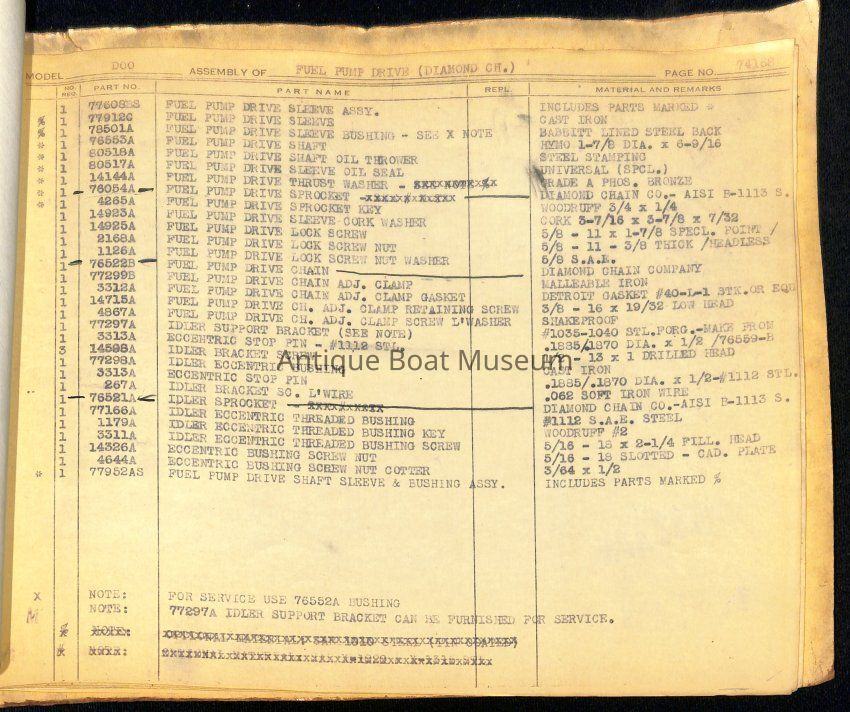 MODEL DOO ASSEMBLY OF FUEL PUMP DRIVE (DIAMOND CH.) PAGE NO. 74168
NO. REQ. PART NO. PART NAME REPL. MATERIAL AND REMARKS
1 77608BS FUEL PUMP DRIVE SLEEVE ASSY. INCLUDES PARTS MARKED *
% 1 77912C FUEL PUMP DRIVE SLEEVE CAST IRON
% 1 78501A FUEL PUMP DRIVE SLEEVE BUSHING - SEE X NOTE BABBITT LINED STEEL BACK
* 1 76553A FUEL PUMP DRIVE SHAFT HYMO 1-7/8 DIA. x 6-9/16
* 1 80518A FUEL PUMP DRIVE SHAFT OIL THROWER STEEL STAMPING
* 1 80517A FUEL PUMP DRIVE SLEEVE OIL SEAL UNIVERSAL (SPCL.)
* 1 14144A FUEL PUMP DRIVE THRUST WASHER - GRADE A PHOS. BRONZE
* 1 76054A FUEL PUMP DRIVE SPROCKET - DIAMOND CHAIN CO.- AISI B-1113 S.
* 1 4265A FUEL PUMP DRIVE SPROCKET KEY WOODRUFF 3/4 x 1/4
1 14923A FUEL PUMP DRIVE SLEEVE CORK WASHER CORK 3-7/16 x 3-7/8 x 7/32
1 14925A FUEL PUMP DRIVE LOCK SCREW 5/8 - 11 x 1-7/8 SPCL. POINT /
1 2168A FUEL PUMP DRIVE LOCK SCREW NUT 5/8 - 11 - 3/8 THICK /HEADLESS
1 1126A FUEL PUMP DRIVE LOCK SCREW NUT WASHER 5/8 S.A.E.
1 76522B FUEL PUMP DRIVE CHAIN DIAMOND CHAIN COMPANY
1 77299B FUEL PUMP DRIVE CHAIN ADJ. CLAMP MALLEABLE IRON
1 3312A FUEL PUMP DRIVE CHAIN ADJ. CLAMP GASKET DETROIT GASKET #40-L-1 STK.OR EQU
1 14715A FUEL PUMP DRIVE CH. ADJ. CLAMP RETAINING SCREW 3/8 - 16 x 19/32 LOW HEAD
1 4867A FUEL PUMP DRIVE CH. ADJ. CLAMP SCREW L'WASHER SHAKEPROOF
1 77297A IDLER SUPPORT BRACKET (SEE NOTE) #1035-1040 STL.FORG.-MAKE FROM
1 3313A ECCENTRIC STOP PIN - #1112 STL. .1885/.1870 DIA. x 1/2 /76559-B
3 14598A IDLER BRACKET SCREW - 13 x 1 DRILLED HEAD
1 77298A IDLER ECCENTRIC BUSHING CAST IRON
1 3313A ECCENTRIC STOP PIN .1885/.1870 DIA. x 1/2-#1112 STL.
1 267A IDLER BRACKET SC. L'WIRE .062 SOFT IRON WIRE
1 76521A IDLER SPROCKET - DIAMOND CHAIN CO.-AISI B-1113 S.
1 77166A IDLER ECCENTRIC THREADED BUSHING #1112 S.A.E. STEEL
1 1179A IDLER ECCENTRIC THREADED BUSHING KEY WOODRUFF #2
1 3311A IDLER ECCENTRIC THREADED BUSHING SCREW 5/16 - 18 x 2-1/4 FILL. HEAD
1 14326A ECCENTRIC BUSHING SCREW NUT 5/16 - 18 SLOTTED - CAD. PLATE
1 4644A ECCENTRIC BUSHING SCREW NUT COTTER 3/64 x 1/2
* 1 77952AS FUEL PUMP DRIVE SHAFT SLEEVE & BUSHING ASSY. INCLUDES PARTS MARKED %
Antique Boat Museum
X NOTE: FOR SERVICE USE 76552A BUSHING
M NOTE: 77297A IDLER SUPPORT BRACKET CAN BE FURNISHED FOR SERVICE.
NOTE: